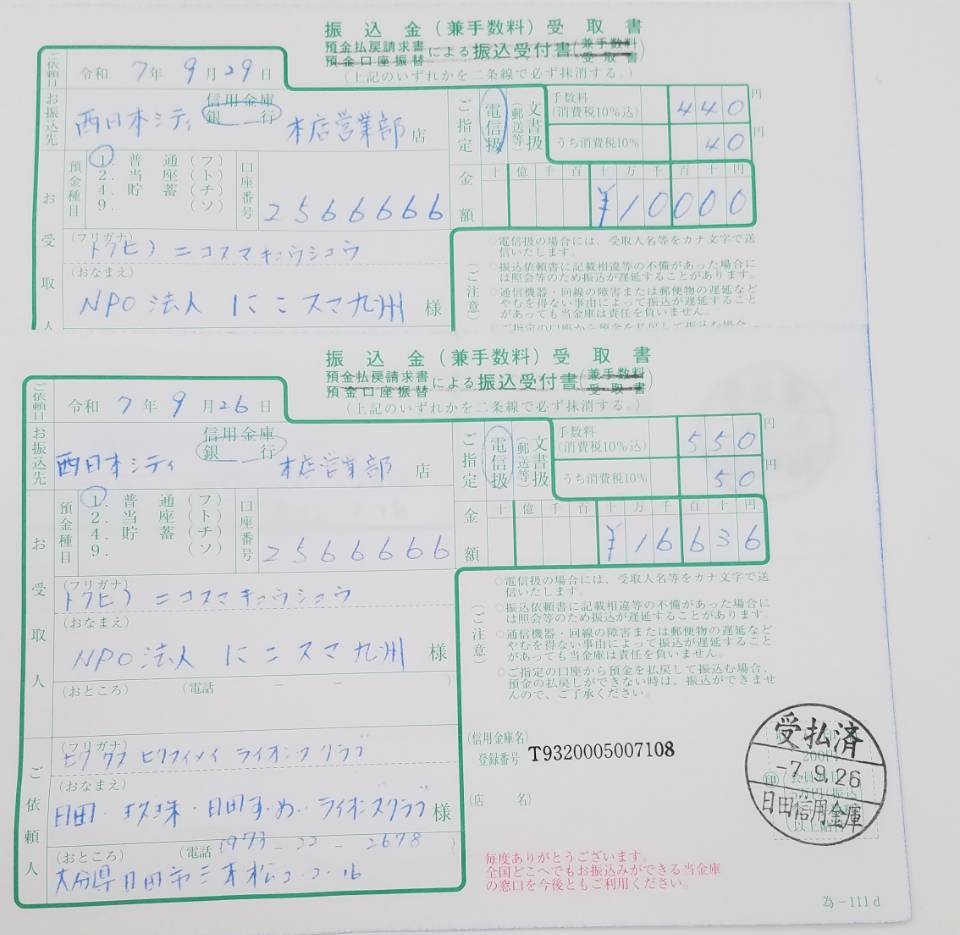 振込金(兼手数料)受取書
預金払戻請求書
預金口座振替
による振込受付書(兼手数料受取書)
(上記のいずれかを二条線で必ず抹消する。)
ご依頼日 令和 7年 9月 29日
お振込先 西日本シティ 信用金庫 銀行 本店営業部 店
ご指定 電信扱 文書扱(郵送等)
手数料(消費税10%込) 440 円
うち消費税10% 40 円
預金種目 1.普通(フ) 2.当座(ト) 4.貯蓄(チ) 9.(ソ)
口座番号 2566666
金額 十億千百十万千百十円 ¥10000
お受取人
(フリガナ) トクヒ)ニコスマキュウシュウ
(おなまえ)
NPO法人 にこスマ九州 様
(ご注意)
○電信扱の場合には、受取人名等をカナ文字で送信いたします。
○振込依頼書に記載相違等の不備があった場合には照会等のため振込が遅延することがあります。
○通信機器・回線の障害または郵便物の遅延などやむを得ない事由によって振込が遅延することがあっても当金庫は責任を負いません。
○ご指定の口座から預金を払戻して振込む場合、
振込金(兼手数料)受取書
預金払戻請求書
預金口座振替
による振込受付書(兼手数料受取書)
(上記のいずれかを二条線で必ず抹消する。)
ご依頼日 令和 7年 9月 26日
お振込先 西日本シティ 信用金庫 銀行 本店営業部 店
ご指定 電信扱 文書扱(郵送等)
手数料(消費税10%込) 550 円
うち消費税10% 50 円
預金種目 1.普通(フ) 2.当座(ト) 4.貯蓄(チ) 9.(ソ)
口座番号 2566666
金額 十億千百十万千百十円 ¥16636
お受取人
(フリガナ) トクヒ)ニコスマキュウシュウ
(おなまえ)
NPO法人 にこスマ九州 様
(おところ) (電話 - - )
(ご注意)
○電信扱の場合には、受取人名等をカナ文字で送信いたします。
○振込依頼書に記載相違等の不備があった場合には照会等のため振込が遅延することがあります。
○通信機器・回線の障害または郵便物の遅延などやむを得ない事由によって振込が遅延することがあっても当金庫は責任を負いません。
○ご指定の口座から預金を払戻して振込む場合、預金の払戻しができない時は、振込ができませんので、ご了承ください。
ご依頼人
(フリガナ)
ライオンズクラブ
(おなまえ)
日田・玖珠・日田すいめいライオンズクラブ 様
(おところ) (電話 (973)-22-2678 )
大分県日田市三本松2-2-16
(信用金庫名)
登録番号 T9320005007108
(店 名)
受払済
-7.9.26
日田信用金庫
印
毎度ありがとうございます。
全国どこへでもお振込みができる当金庫
の窓口を今後ともご利用ください。
為-111d